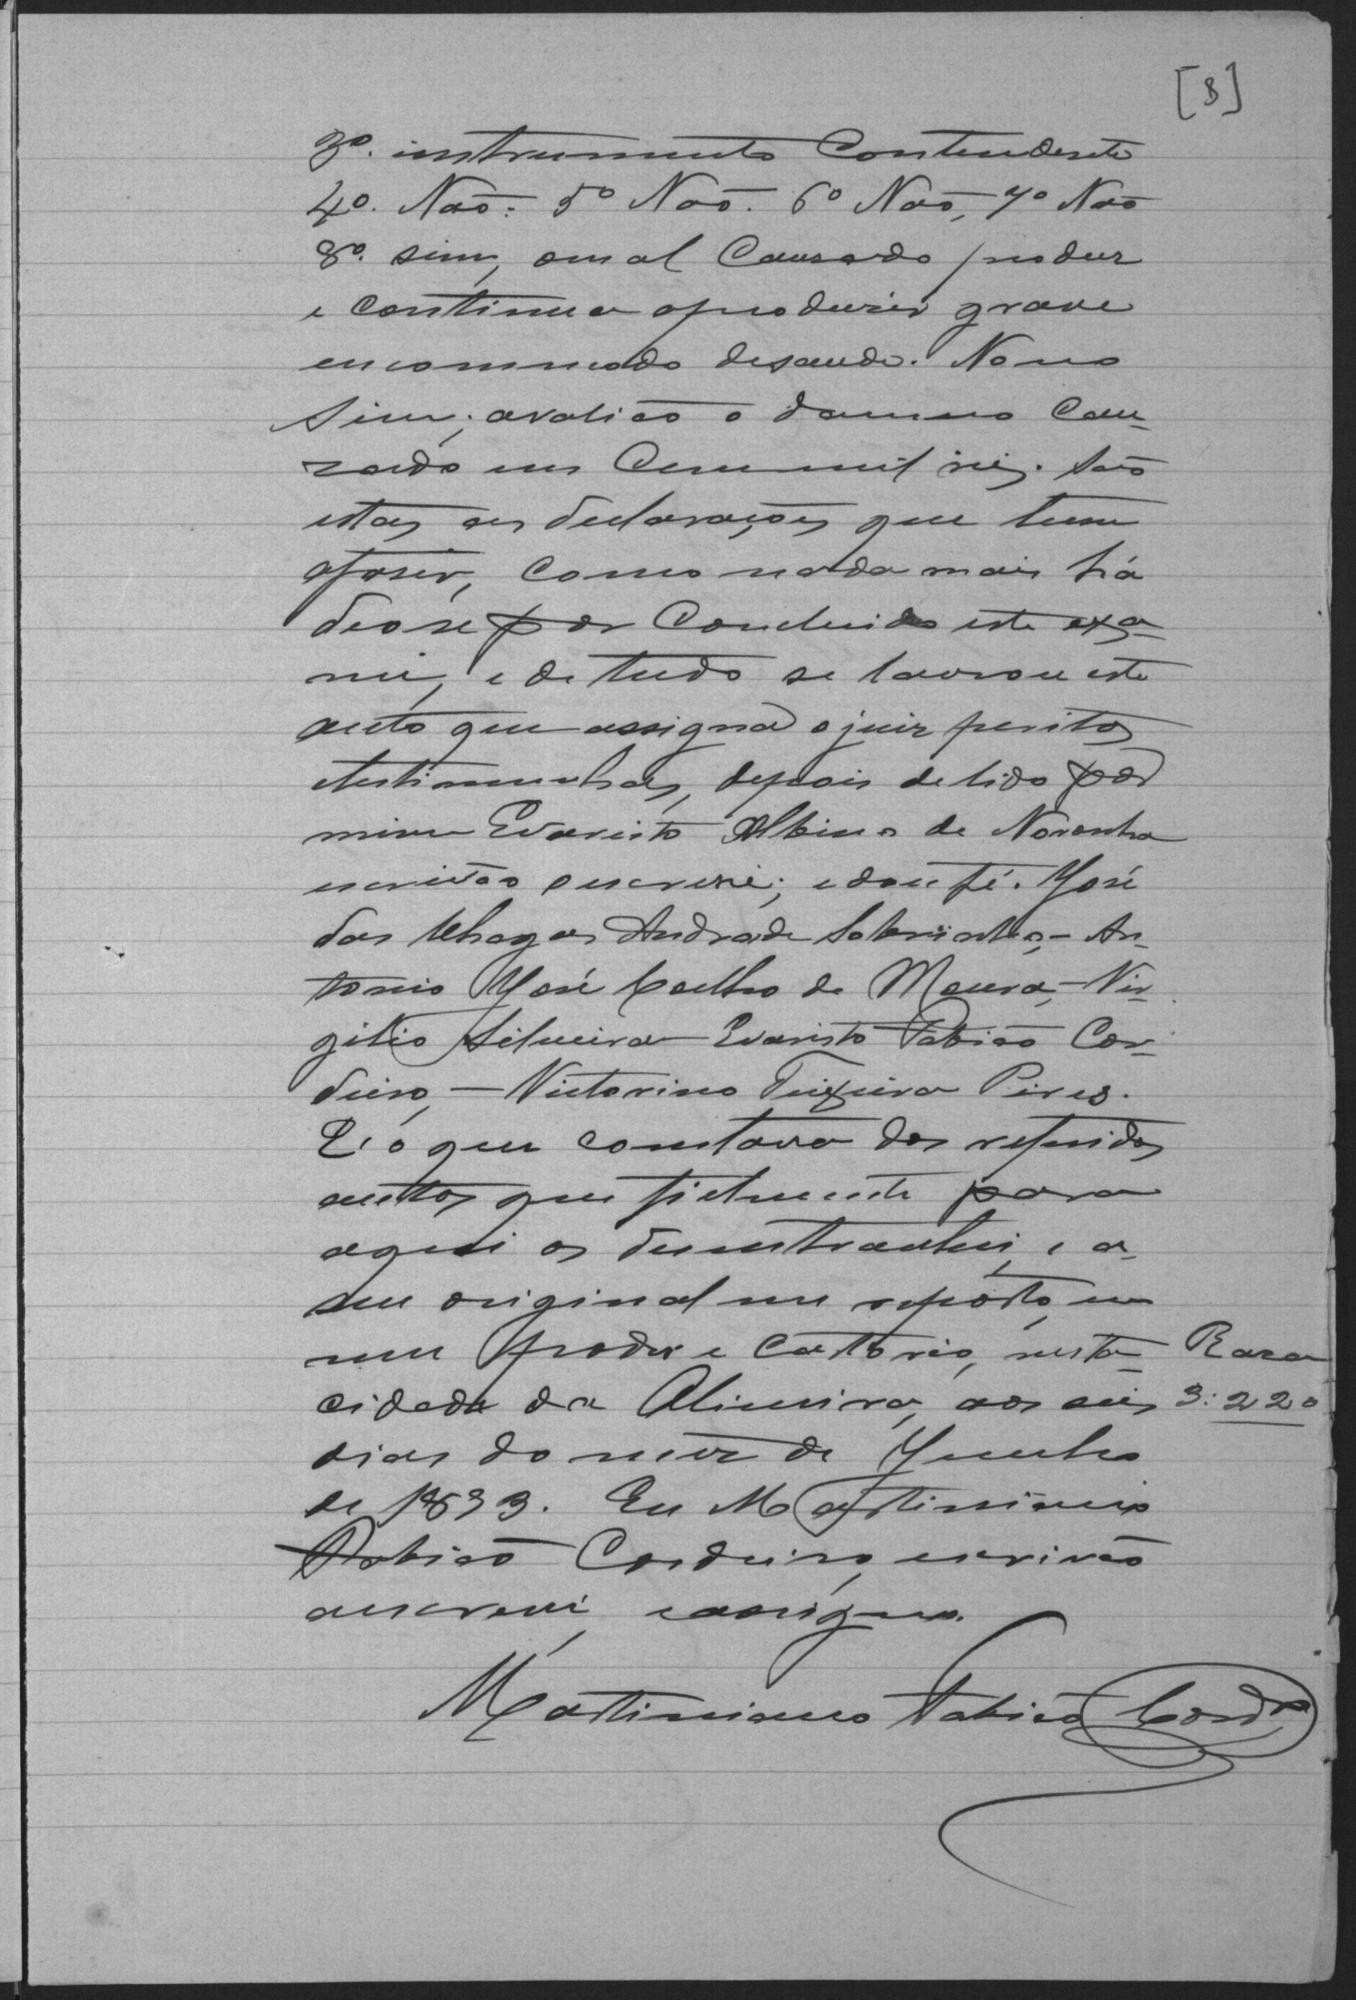 [8]
3º. instrumento Contendente
4º. Não: 5º Não. 6º Não, 7º Não
8º. sim, omal Causado produz
e continua aproduzir grave
encommodo desaude. Nono
sim; avalião o damno Cau-
zado em Cem mil reis. São
estas as declarações que tem
afaser, como nada mais há
deose por Concluido este exa-
me, e de tudo se lavrou este
auto que assigna o juiz peritos
etestimunhas, depois de lido por
mim Evaristo Albino de Noronha
escrivão oescrevi; edou fé. José
das Chagas Andrade Sobrinho,- An-
tonio José Coelho de Moura,- Vir-
gilio Silveira- Evaristo Fabião Cor-
deiro,- Victorino Teixeira Pires.
E' o que constava dos referidos
auttos que fielmente para
aqui os
seu original me reporto, em
meu poder e cartorio, nesta
Raza
cidade da Alimira, aos seis
3:220
dias do mez de Junho
de 1893. Eu Martiniano
Fabião Cordeiro, escrivão
oescrevi, eassigno.
Martiniano Fabião Cordrº